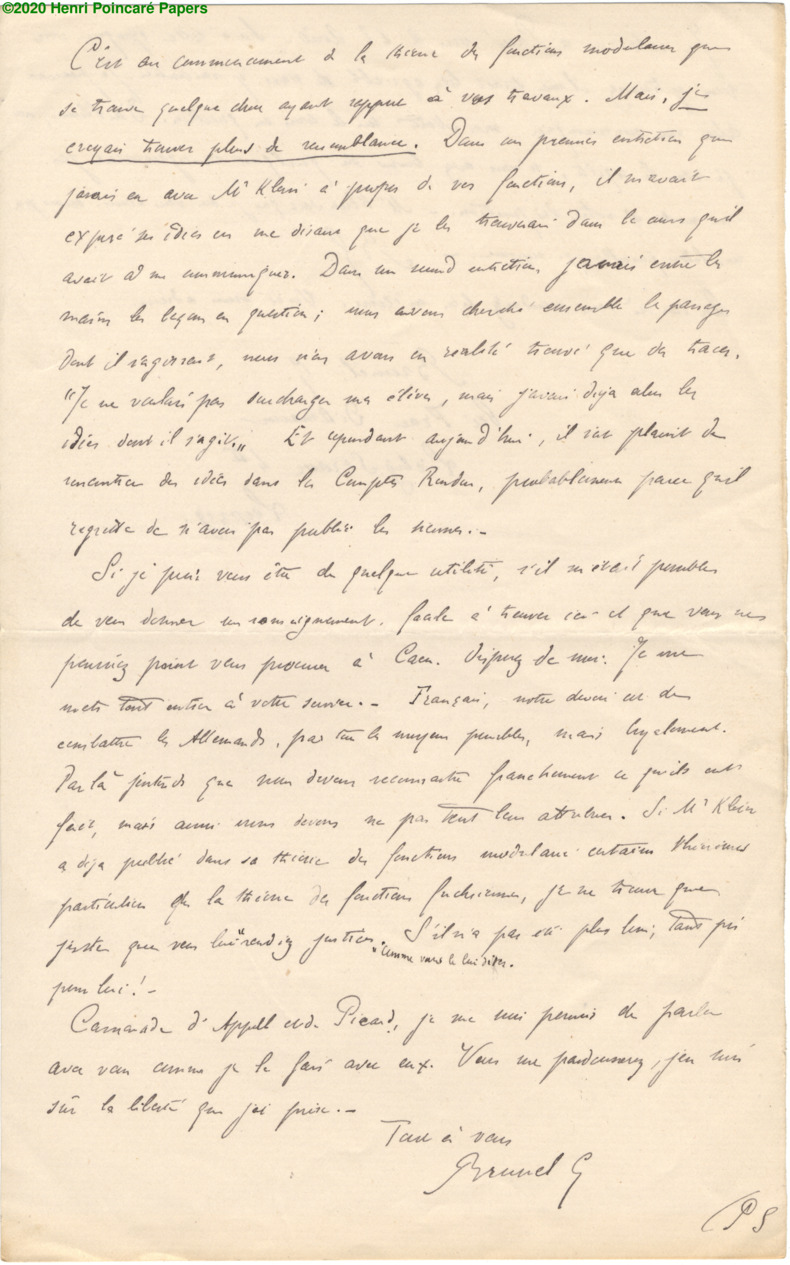 ©2020 Henri Poincaré Papers
C'est au commencement de la théorie des fonctions modulaires que
se trouve quelque chose ayant rapport à vos travaux. Mais, je
croyais trouver plus de ressemblance. Dans un premier entretien que
j'avais eu avec Mr Klein à propos de vos fonctions, il m'avait
exposé ses idées en me disant que je les trouverais dans le cours qu'il
avait à me communiquer. Dans un second entretien, j'avais entre les
mains les leçons en question ; nous avons cherché ensemble le passage
dont il s'agissait, nous n'en avons en réalité trouvé que des traces.
"Je ne voulais pas surcharger mes élèves, mais j'avais déjà alors les
idées dont il s'agit„ Et cependant aujourd'hui, il se plaint de
rencontrer des idées dans les Comptes Rendus, probablement parce qu'il
regrette de n'avoir pas publié les siennes. –
Si je puis vous être de quelque utilité, s'il m'était possible
de vous donner un renseignement, facile à trouver ici et que vous ne
pourriez point vous procurer à Caen. Disposez de moi. Je me
mets tout entier à votre service. – Français, notre devoir est de
combattre les Allemands, par tous les moyens possibles, mais loyalement.
Par là j'entends que nous devons reconnaître franchement ce qu'ils ont
fait, mais aussi nous devons ne pas tout leur attribuer. Si Mr Klein
a déjà publié dans sa théorie des fonctions modulaires certains théorèmes
particuliers de la théorie des fonctions fuchsiennes, je ne trouve que
juste que vous lui rendiez justice "comme vous le lui dites. S'il n'a pas été plus loin, tant pis
pour lui ! –
Camarade d'Appell et de Picard, je me suis permis de parler
avec vous comme je le fais avec eux. Vous me pardonnerez, j'en suis
sûr la liberté que j'ai prise. –
Tout à vous
Brunel G
PS